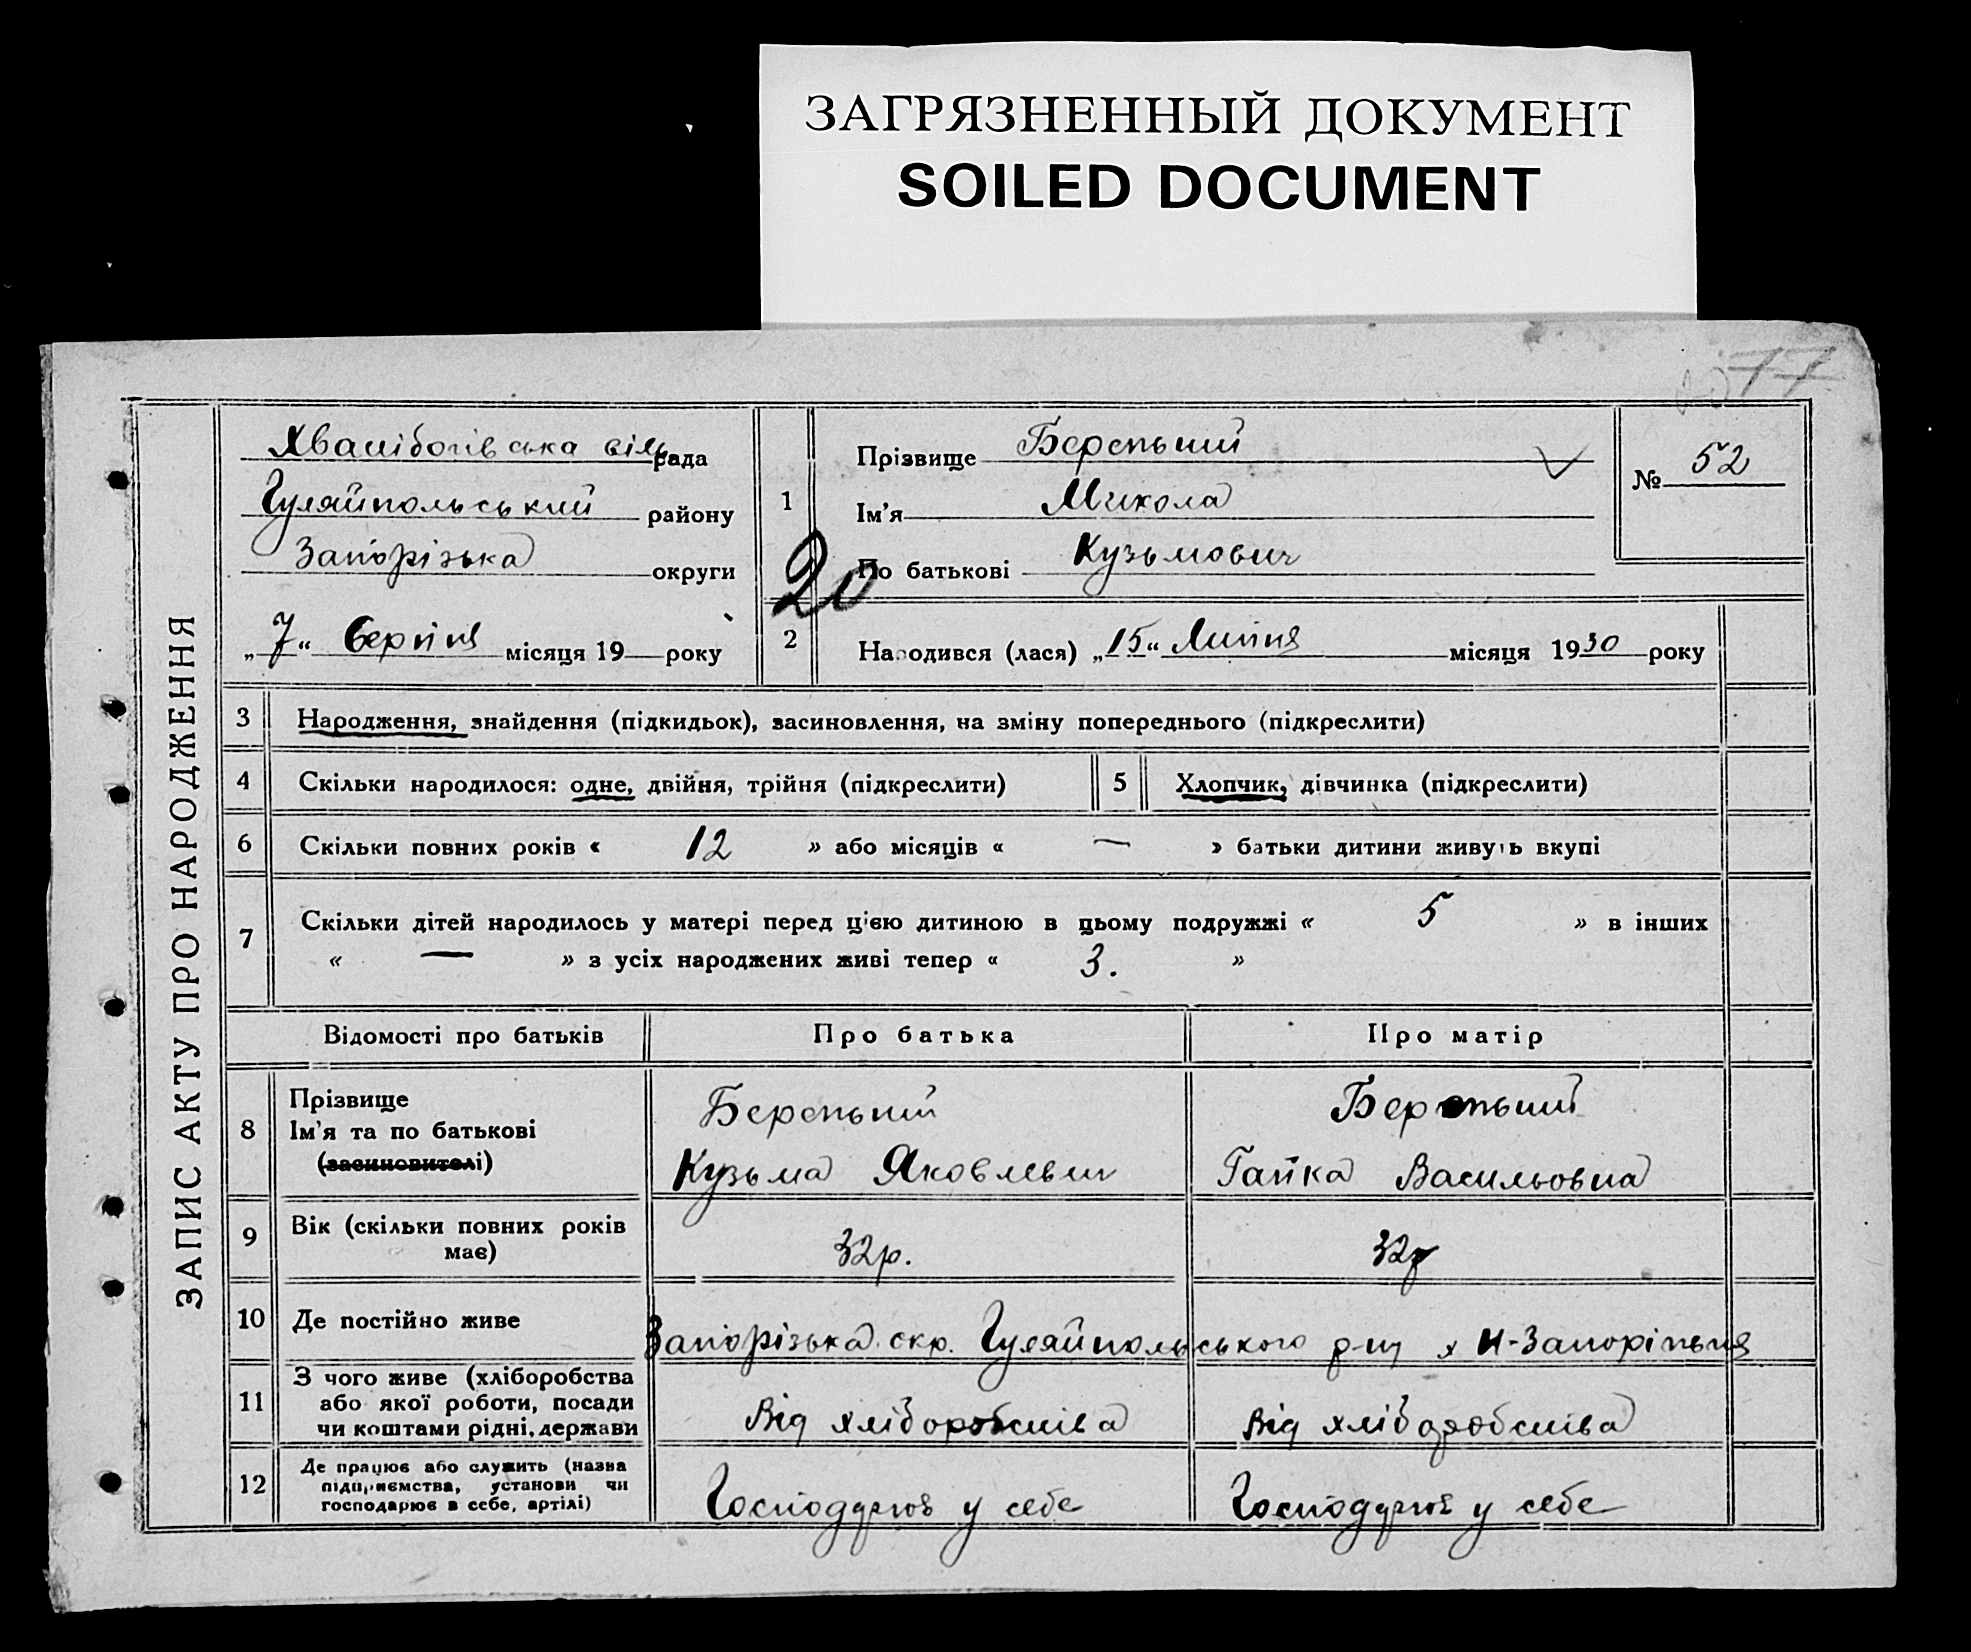 ЗАГРЯЗНЕННЫЙ ДОКУМЕНТ
SOILED DOCUMENT
77
ЗАПИС АКТУ ПРО НАРОДЖЕННЯ
сіль рада
Гуляйпольський району
Запорізька округи
„7“ Серпня місяця 19 року
1
Прізвище
Ім'я Микола
По батькові Кузьмович
№ 52
20
2 Народився (лася) „15“ Липня місяця 1930 року
3 Народження, знайдення (підкидьок), засиновлення, на зміну попереднього (підкреслити)
4 Скільки народилося: одне, двійня, трійня (підкреслити) 5 Хлопчик, дівчинка (підкреслити)
6 Скільки повних років « 12 » або місяців « — » батьки дитини живуть вкупі
7 Скільки дітей народилось у матері перед цією дитиною в цьому подружжі « 5 » в інших
« — » з усіх народжених живі тепер « 3. »
Відомості про батьків Про батька Про матір
8 Прізвище
Ім'я та по батькові
(засиновителі)
Кузьма Яковлевич
Гапка Васильовна
9 Вік (скільки повних років має) 32р. 32р
10 Де постійно живе Запорізька окр. Гуляйпольського р-ну х Н-Запоріжья
11 З чого живе (хліборобства
або якої роботи, посади
чи коштами рідні, держави
Від хліборобства Від хліборобства
12 Де працює або служить (назва
підприємства, установи чи
господарює в себе, артілі)
Господурює у себе Господурює у себе